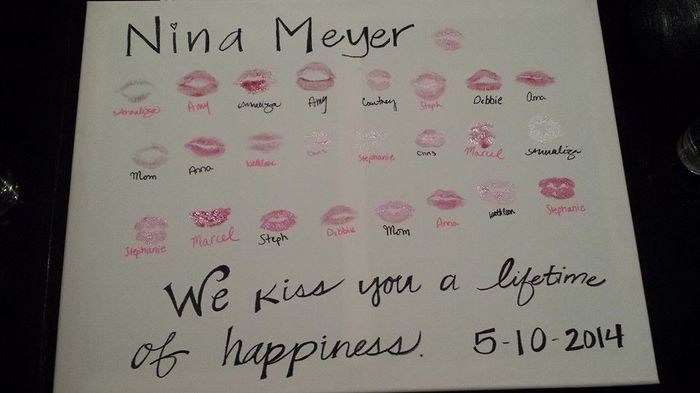 Nina Meyer
Annaliza Amy Annaliza Amy Courtney Steph Debbie Anna
Mom Anna Kathleen Chris Stephanie Chris Marcel Annaliza
Stephanie Marcel Steph Debbie Mom Anna Kathleen Stephanie
We kiss you a lifetime
of happiness. 5-10-2014